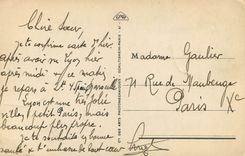 Chère Sœur,
Je confirme carte d'hier
après avoir vu Lyon hier
après midi
je repars à St
Lyon est une très jolie
ville, petit Paris, mais
beaucoup plus propre.
Je te souhaite bonne
santé & t'embrasse de tout cœur
Madame Gautier
71 Rue de Maubeuge
Paris Xe